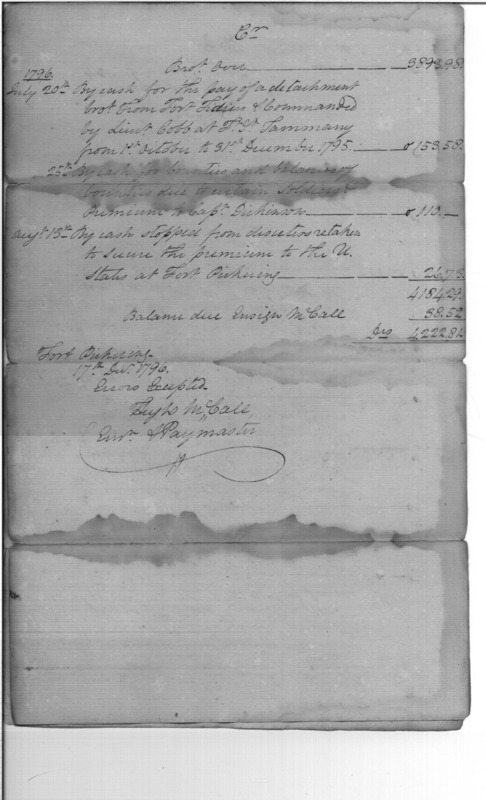 Cr
1796. Brot. Over 3893.98
July 20th By cash for the pay of a detachment
brot. from Fort Fidius & Commanded
by Lieut Cobb at Ft. St. Tammany
from 1st. October to 31st. December 1795. 153.58.
25th By cash for bounties and balances of
bounties due certain Soldiers &
Premium to Capt. Dickinson 110.—
Augt. 13th By cash stopped from deserters retaken
to secure the premium to the U.
States at Fort Pickering 26.73
4184.29.
Balance due Ensign McCall 38.52
Drs 4222.81
Fort Pickering
17th Dec. 1796.
Errors Excepted.
Hugh McCall,
Ensn. & Paymaster